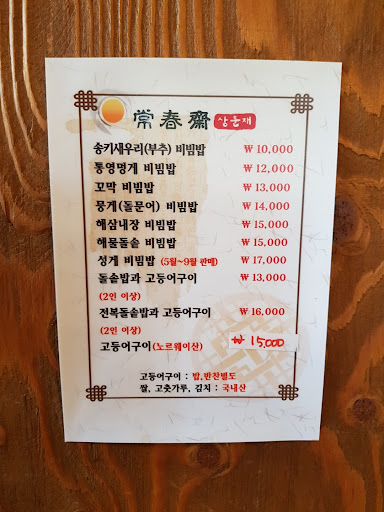 常春齋 상춘재
송키새우리(부추) 비빔밥 ₩ 10,000
통영멍게 비빔밥 ₩ 12,000
꼬막 비빔밥 ₩ 13,000
뭉게(돌문어) 비빔밥 ₩ 14,000
해삼내장 비빔밥 ₩ 15,000
해물돌솥 비빔밥 ₩ 15,000
성게 비빔밥 (5월~9월 판매) ₩ 17,000
돌솥밥과 고등어구이 ₩ 13,000
(2인 이상)
전복돌솥밥과 고등어구이 ₩ 16,000
(2인 이상)
고등어구이(노르웨이산) ₩ 15,000
고등어구이 : 밥,반찬별도
쌀, 고춧가루, 김치 : 국내산